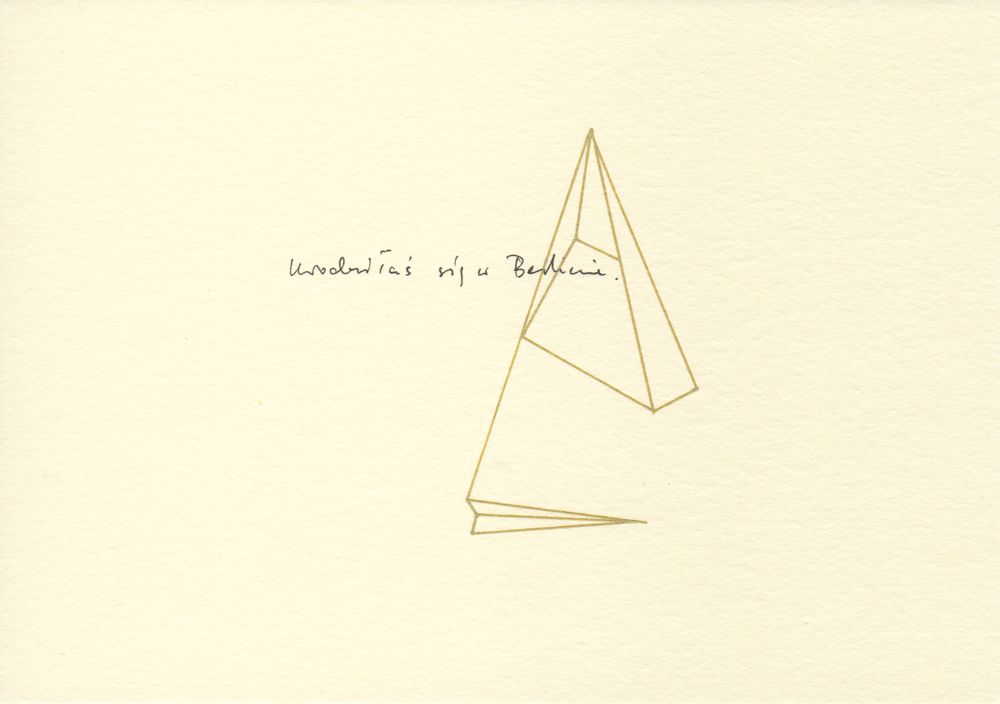 Urodziłaś się w Berlinie.